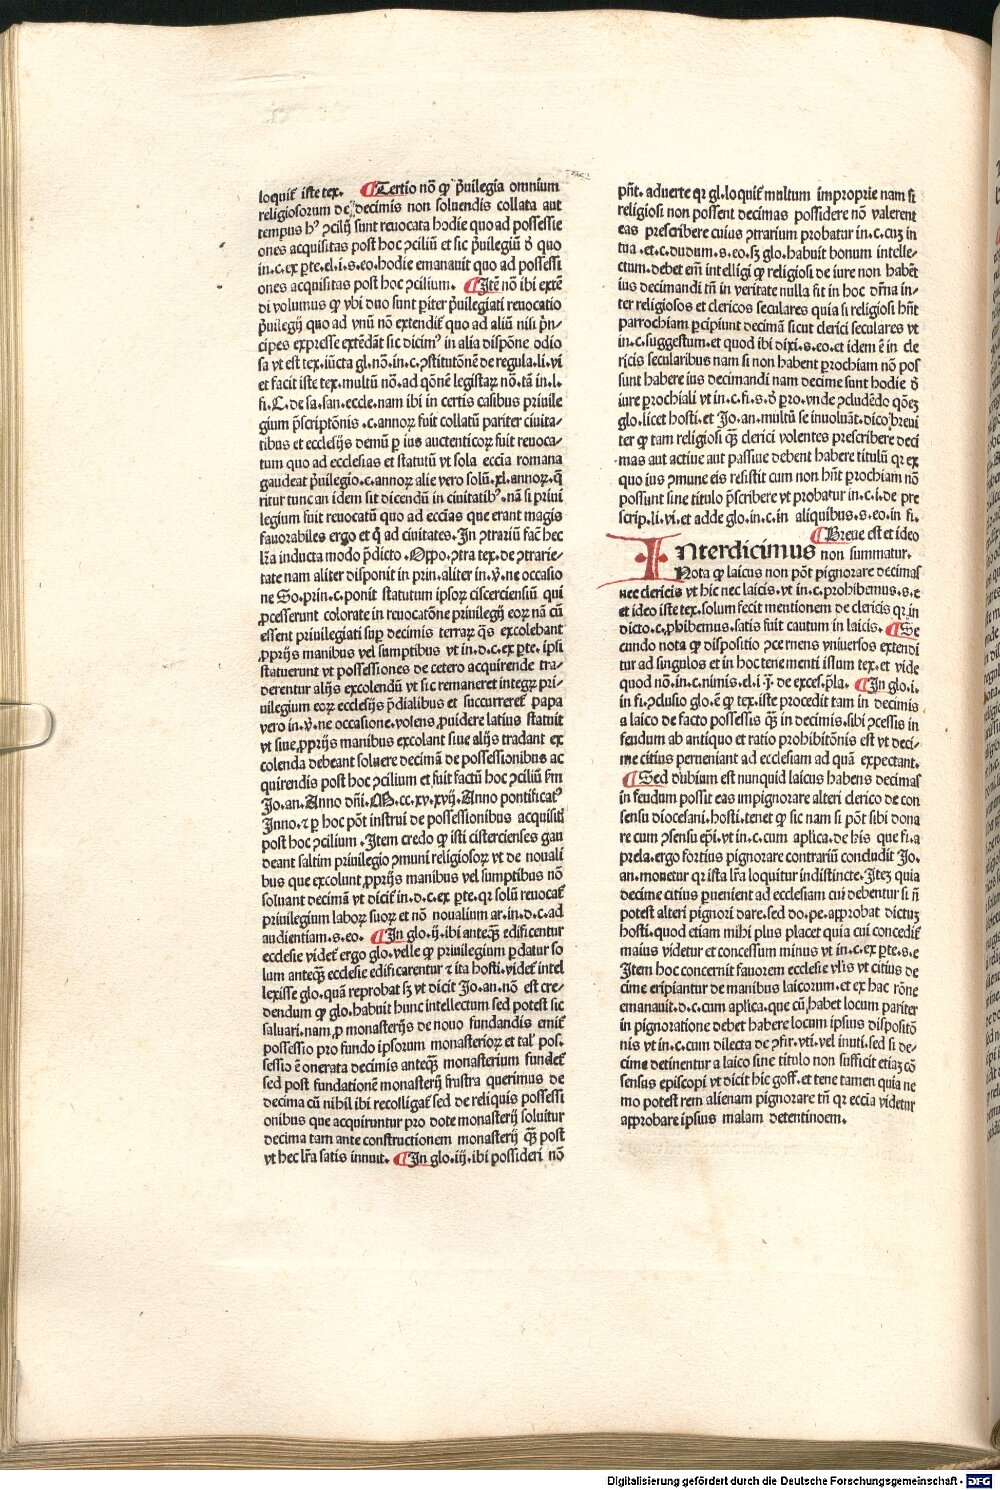 loquit̃ iste tex. ¶Tertio nō ꝙ p̃uilegia omnium
religiosorum de decimis non soluendis collata aut
tempus hꝰ ꝯcilij sunt reuocata hodie quo ad possessi
ones acquisitas post hoc ꝯciliū et sic p̃uilegiū ð quo
in.c.ex pte.el.i.s.eo.hodie emanauit quo ad possessi
ones acquisitas post hoc ꝯcilium. ¶Itē nō ibi extē
di volumus ꝙ vbi duo sunt pariter p̃uilegiati reuocatio
p̃uilegij quo ad vnū nō extendit̃ quo ad aliū nisi p̃n⸗
cipes expresse extēdāt sic dicimꝰ in alia dispōne odio
sa vt est tex.iūcta gl.nō.in.c.ꝯstitutōne de regula.li.vi
et facit iste tex.multū nō.ad qōnē legistaꝝ nō.tā in.l.
fi.C.de sa.san.eccle.nam ibi in certis casibus priuile
gium p̃scriptōnis .c.annoꝝ fuit collatū pariter ciuita⸗
tibus et ecclesijs demū p ius auctenticoꝝ fuit reuoca⸗
tum quo ad ecclesias et statutū vt sola eccīa romana
gaudeat p̃uilegio.c.annoꝝ alie vero solū.xl.annoꝝ.q̄
ritur tunc an idem sit dicendū in ciuitatibꝰ.nā si priui
legium fuit reuocatū quo ad ecc̄ias que erant magis
fauorabiles ergo et q̄ ad ciuitates. In ꝯtrariū fac̄ hec
lr̄a inducta modo p̄dicto .Oppo.ꝯtra tex.de ꝯtrarie⸗
tate nam aliter disponit in prin.aliter in.ꝟ.ne occasio
ne So.prin.c.ponit statutum ipsoꝝ ciscerciensiū qui
ꝓcesserunt colorate in reuocatōne priuilegij eoꝝ nā cū
essent priuilegiati sup decimis terraꝝ q̄s excolebant
ꝓprijs manibus vel sumptibus vt in.d.c.ex pte. ipsi
statuerunt vt possessiones de cetero acquirende tra⸗
derentur alijs excolendū vt sic remaneret integꝝ pri⸗
uilegium eoꝝ ecclesijs p̄dialibus et succurreret̃ papa
vero in.ꝟ.ne occasione.volens ꝓuidere latius statuit
vt siue ꝓprijs manibus excolant siue alijs tradant ex
colenda debeant soluere decimā de possessionibus ac
quirendis post hoc ꝯcilium et fuit factū hoc ꝯciliū ẜm
Jo.an.Anno dn̄i.M.cc.xv.xvij.Anno pontificatꝰ
Inno.⁊ p hoc pōt instrui de possessionibus acquisitī
post hoc ꝯcilium .Item credo ꝙ isti cistercienses gau
deant saltim priuilegio ꝯmuni religiosoꝝ vt de nouali
bus que excolunt ꝓprijs manibus vel sumptibus nō
soluant decimā vt dicit̃ in.d.c.ex pte.qꝛ solū reuocat̃
priuilegium laboꝝ suoꝝ et nō noualium ar.in.d.c.ad
audientiam.s.eo. ¶In glo.ij.ibi anteqꝫ edificentur
ecclesie videt̃ ergo glo.velle ꝙ priuilegium pdatur so
lum anteqꝫ ecclesie edificarentur ⁊ ita hosti.videt̃ intel
lexisse glo.quā reprobat sꝫ vt dicit Jo.an.nō est cre⸗
dendum ꝙ glo.habuit hunc intellectum sed potest sic
saluari.nam ꝓ monasterijs de nouo fundandis emit̃
possessio pro fundo ipsorum monasterioꝝ et talꝰ pos⸗
sessio ē onerata decimis anteqꝫ monasterium fundet̃
sed post fundationē monasterij frustra querimus de
decima cū nihil ibi recolligat̃ sed de reliquis possessi
onibus que acquiruntur pro dote monasterij soluitur
decima tam ante constructionem monasterij qꝫ post
vt hec lr̄a satis innuit. ¶In glo.iij.ibi possideri nō
pn̄t. aduerte qꝛ gl.loquit̃ multum improprie nam si
religiosi non possent decimas possidere nō valerent
eas prescribere cuius ꝯtrarium probatur in.c.cuꝫ in
tua .et.c.dudum.s.eo.sꝫ glo.habuit bonum intelle⸗
ctum.debet em̄ intelligi ꝙ religiosi de iure non habēt
ius decimandi tn̄ in veritate nulla fit in hoc dr̄na in⸗
ter religiosos et clericos seculares quia si religiosi hn̄t
parrochiam pcipiunt decimā sicut clerici seculares vt
in.c.suggestum.et quod ibi dixi.s.eo.et idem ē in cle
ricis secularibus nam si non habent prochiam nō pos
sunt habere ius decimandi nam decime sunt hodie ð
iure prochiali vt in.c.fi.s.ð pro.vnde ꝯcludēdo qōeꝫ
glo.licet hosti.et Jo.an.multū se inuoluāt.dico breui
ter ꝙ tam religiosi qꝫ clerici volentes prescribere deci
mas aut actiue aut passiue debent habere titulū qꝛ ex
quo ius ꝯmune eis resistit cum non hn̄t prochiam nō
possunt sine titulo p̄scribere vt probatur in.c.i.de pre
scrip.li.vi.et adde glo.in.c.in aliquibus.s.eo.in fi.
¶Breue est et ideo
Interdicimus non summatur.
Nota ꝙ laicus non pōt pignorare decimas
nec clericis vt hic nec laicis.vt in.c.prohibemus.s.e
et ideo iste tex.solum fecit mentionem de clericis qꝛ in
dicto.c.ꝓhibemus.satis fuit cautum in laicis. ¶Se
cundo nota ꝙ dispositio ꝯcernens vniuersos extendi
tur ad singulos et in hoc tene menti istum tex.et vide
quod nō.in.c.nimis.el.i ī. de exces.p̄la. ¶In glo.i.
in fi.ꝯclusio glo.ē ꝙ tex.iste procedit tam in decimis
a laico de facto possessis qꝫ in decimis.sibi ꝯcessis in
feudum ab antiquo et ratio prohibitōnis est vt deci⸗
me citius perueniant ad ecclesiam ad quā expectant.
¶Sed dubium est nunquid laicus habens decimas
in feudum possit eas impignorare alteri clerico de con
sensu diocesani.hosti.tenet ꝙ sic nam si pōt sibi dona
re cum ꝯsensu ep̄i.vt in.c.cum aplica.de his que fi.a
prela.ergo fortius pignorare contrariū concludit Jo.
an.mouetur qꝛ ista lr̄a loquitur indistincte.Iteꝫ quia
decime citius puenient ad ecclesiam cui debentur si n̄
potest alteri pignori dare.sed do.pe.approbat dictuꝫ
hosti.quod etiam mihi plus placet quia cui concedit̃
maius videtur et concessum minus vt in.c.ex pte.s.e
Item hoc concernit fauorem ecclesie vl̄is vt citius de
cime eripiantur de manibus laicorum.et ex hac rōne
emanauit.d.c.cum aplica.que cū habet locum pariter
in pignoratione debet habere locum ipsius dispositō
nis vt in.c.cum dilecta de ꝯfir.vti.vel inuti.sed si de⸗
cime detinentur a laico sine titulo non sufficit etiaꝫ cō
sensus episcopi vt dicit hic goff.et tene tamen quia ne
mo potest rem alienam pignorare tn̄ qꝛ eccīa videtur
approbare ipsius malam detentionem.
Digitalisierung gefördert durch die Deutsche Forschungsgemeinschaft - DFG